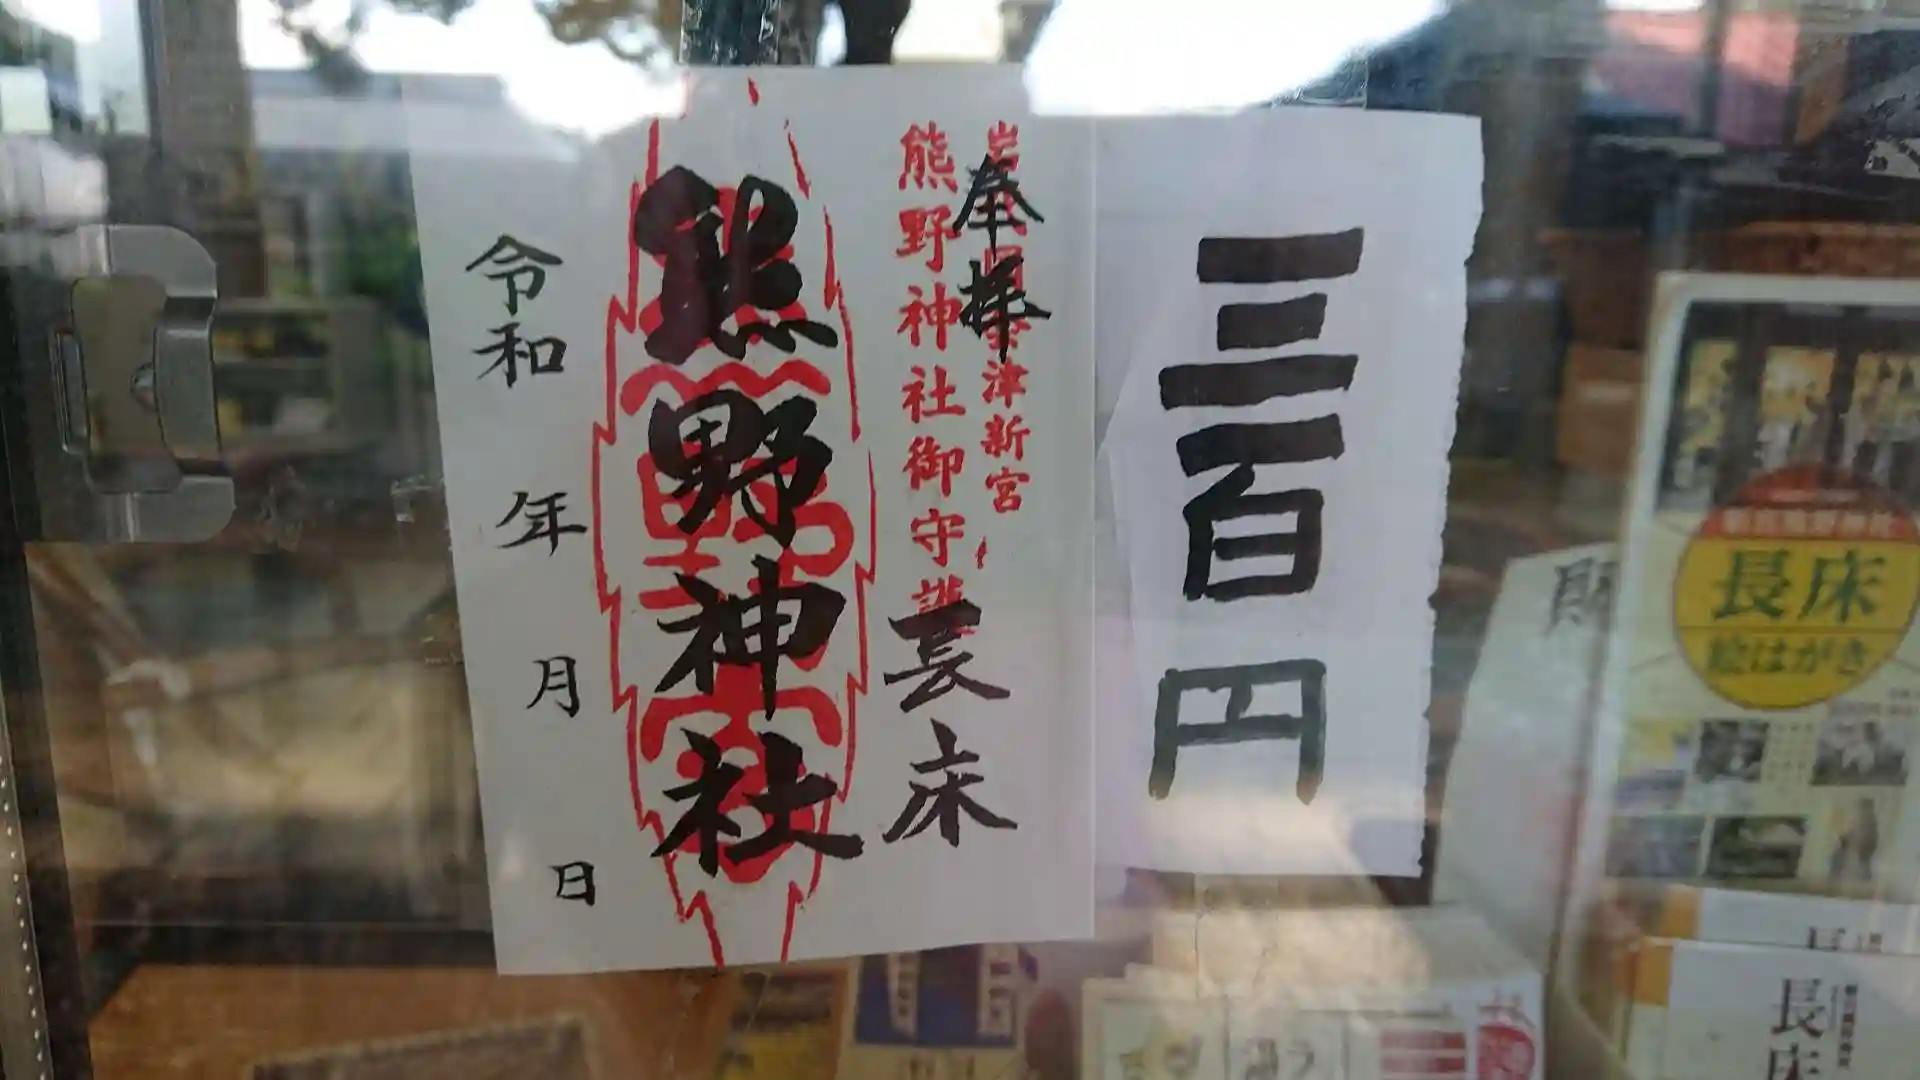 三百円
奉拝
岩代国会津新宮
熊野神社御守護
長床
熊野神社
令和 年 月 日
長床
絵はがき
長床